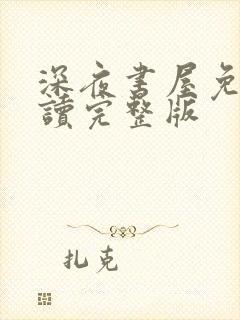 深夜書屋免
讀完整版
扎克